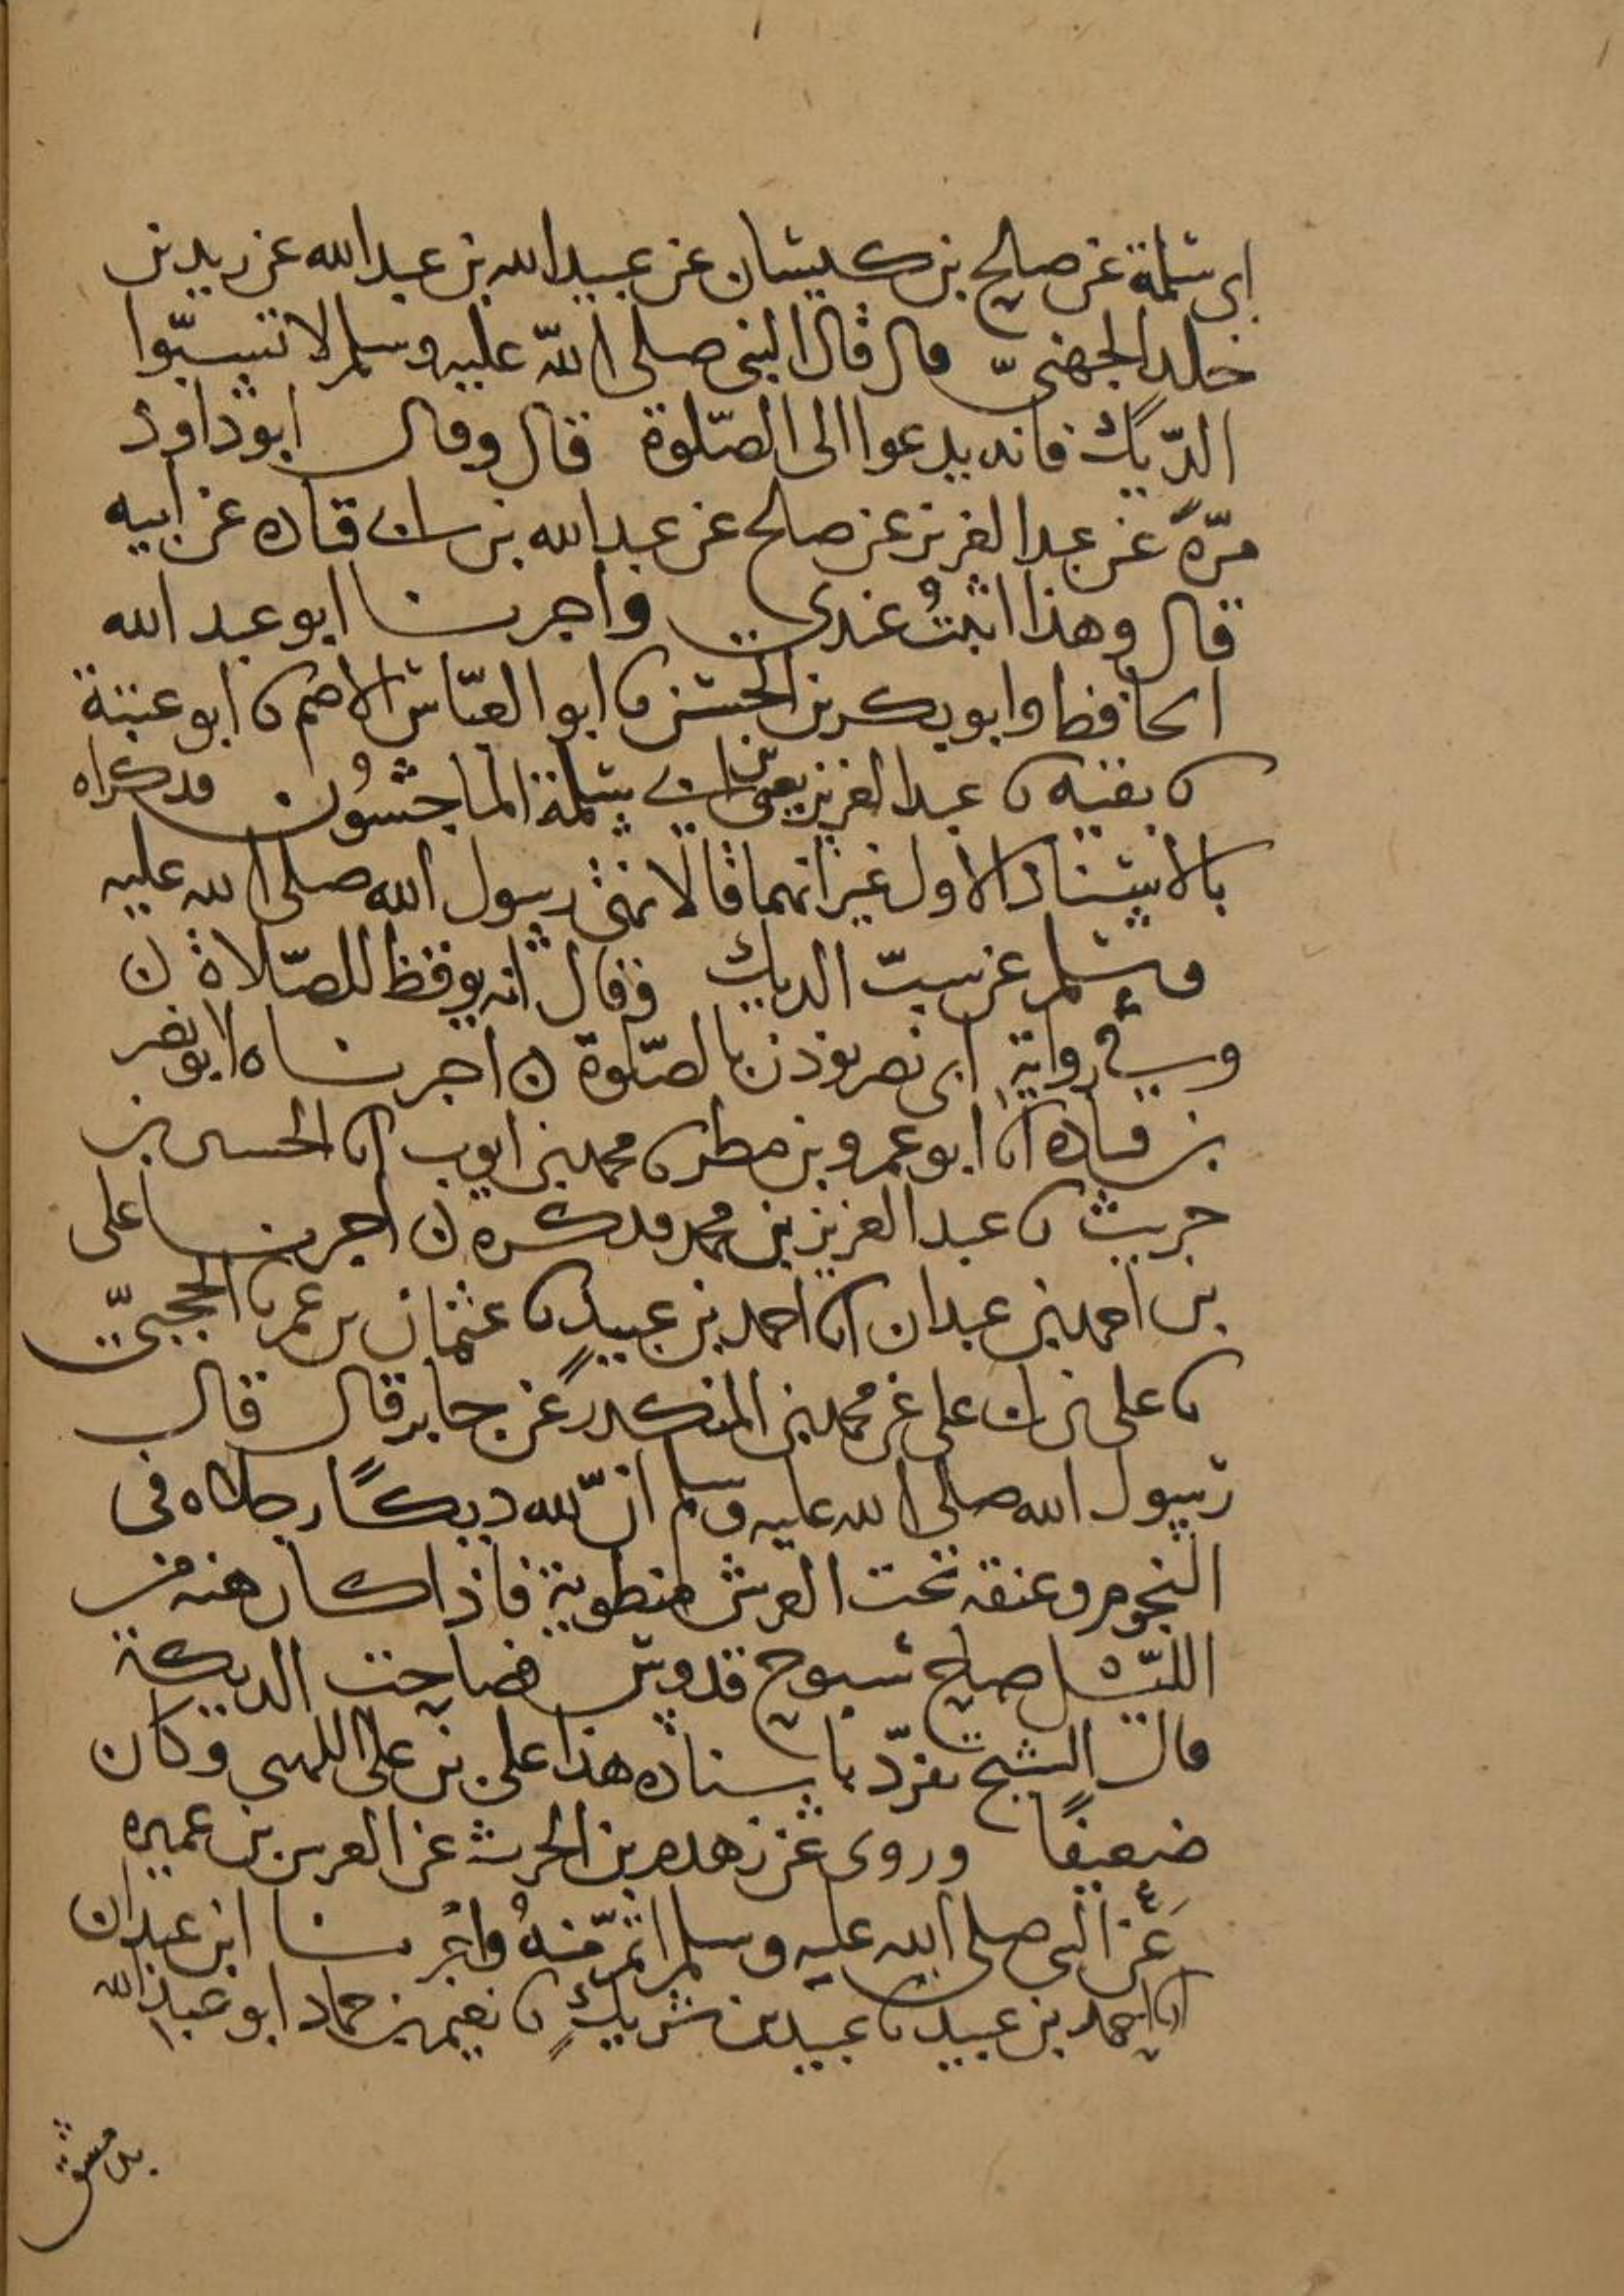 ابى سلمة عن صالح بن كيسان عن عبيد الله بن عبد الله عن زيد بن
خلد الجهنىّ قال قال النبى صلى اللّه عليه وسلم لا تسبّوا
الدّيك فانه يدعوا الى الصّلوة قال وقال ابو داود
مرّةً عن عبد العزيز عن صالح عن عبد الله بن ابى قتاده عن ابيه
قال وهذا اثبتُ عندى واخبرنا ابو عبد الله
الحافظ وابو بكر بن الحسن نا ابو العبّاس الاصم نا ابو عتبة
نا بقيه نا عبد العزيز يعنى بن ابى سلمة الماجشُون فذكراه
بالاسناد الاول غير انهما قالا نهى رسول الله صلى الله عليه
وسلم عن سبّ الديك وقال انه يوقظ للصّلاة ن
وفي رواية ابى نصر يوذن بالصّلوة ن اخبرناه ابو نصر
بن قتاده انا ابو عمرو بن مطر نا محمد بن ايوب انا الحسين بن
حريث نا عبد العزيز بن محمد فذكره ن اخبرنا على
بن احمد بن عبدان انا احمد بن عبيدٍ نا عثمان بن عمر نا الحجبىّ
نا على بن ابى على عن محمد بن المنكدر عن جابر قال قال
رسول الله صلى الله عليه وسلم انّ لله ديكًا رجلاه فى
النجوم وعنقه تحت العرش منطوية فاذا كان هنه من
الليل صاح سبوح قدوس فصاحت الديكة
قال الشيخ تفرّد باسناده هذا على بن على اللهبى وكان
ضعيفًا وروى عن زهدم بن الحرث عن العرس بن عميره
عَن النبى صلى الله عليه وسلم اتمّ منهُ واخبرنا ابن عبدان
انا احمد بن عبيد نا عبيد بن شريكٍ نا نعيم بن حماد ابو عبد الله
بدمشق